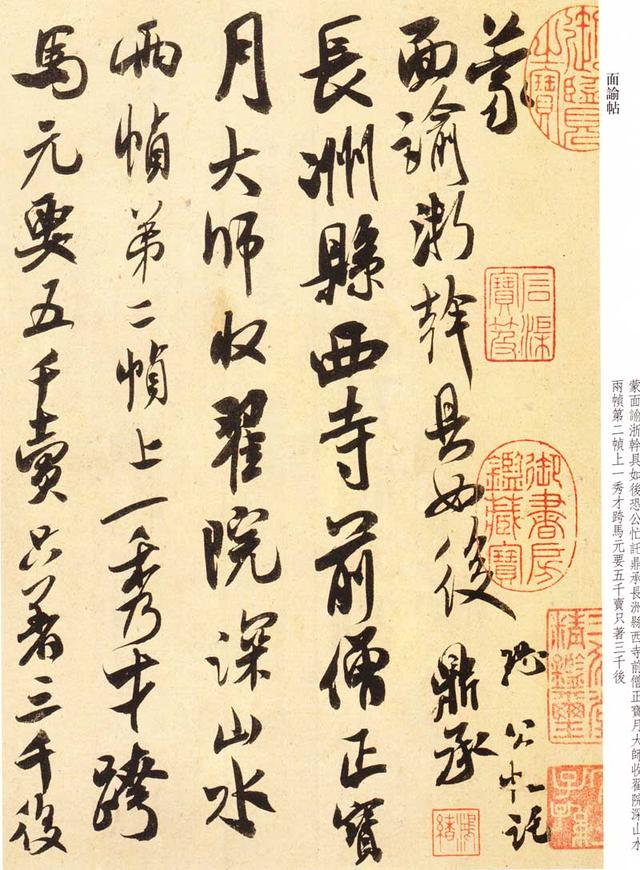 面諭帖
蒙面諭浙幹具如後恐公忙託鼎承長洲縣西寺前僧正寶月大師收翟院深山水
兩幀第二幀上一秀才跨馬元要五千賣只著三千後
蒙
面諭浙幹具如後
恐公忙託
鼎承
長洲縣西寺前僧正寶
月大師收翟院深山水
兩幀第二幀上一秀才跨
馬元要五千賣只著三千後
御覽
之寶
石渠
寶笈
御書房
鑑藏寶
精鑑璽
子孫